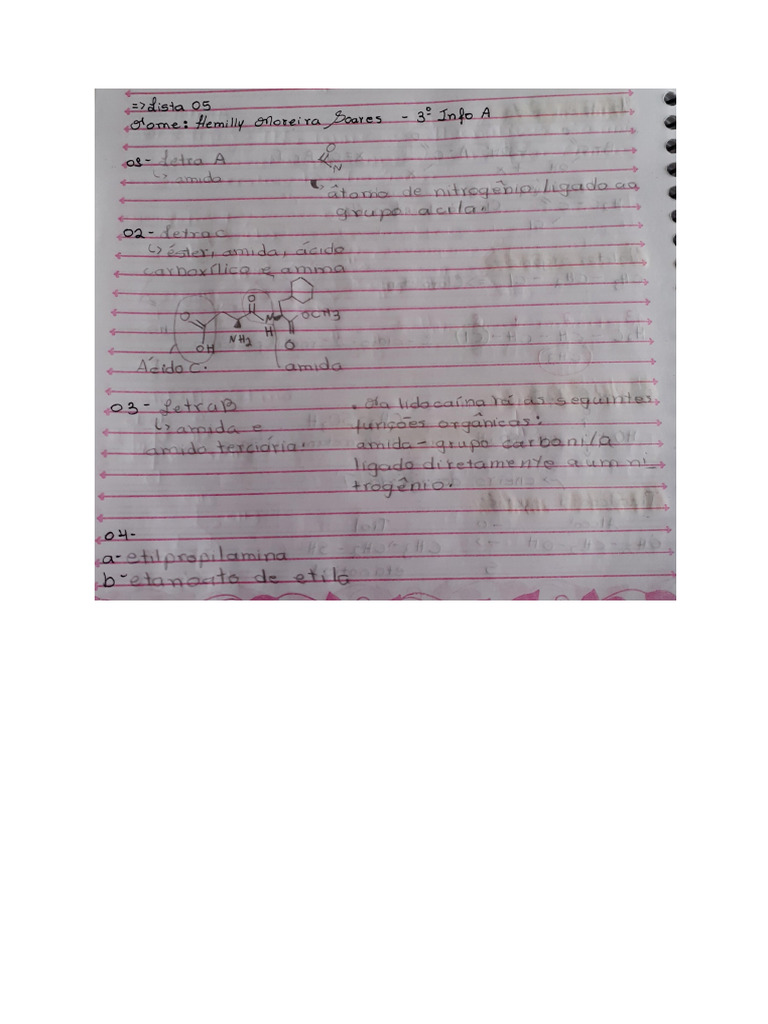 => Lista 05
Nome: Hemilly Moreira Soares - 3º Info A
01- Letra A
↳ amida
O
N
↳ átomo de nitrogênio ligado ao
grupo acila.
02- Letra C
↳ éster, amida, ácido
carboxílico e amina
O
O
N
H
OCH3
OH
NH2
O
Ácido C.
amida
03- Letra B
↳ amida e
amida terciária.
. Na lidocaína há as seguintes
funções orgânicas:
amida - grupo carbonila
ligado diretamente a um ni_
trogênio.
04-
a- etilpropilamina
b- etanoato de etila